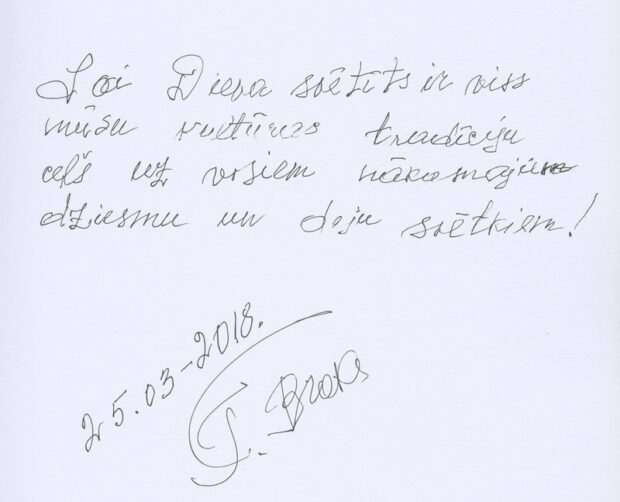 Lai Dieva svētīts ir viss
mūsu kultūras tradīciju
ceļš uz visiem nākamajiem
dziesmu un deju svētkiem!
25.03-2018.